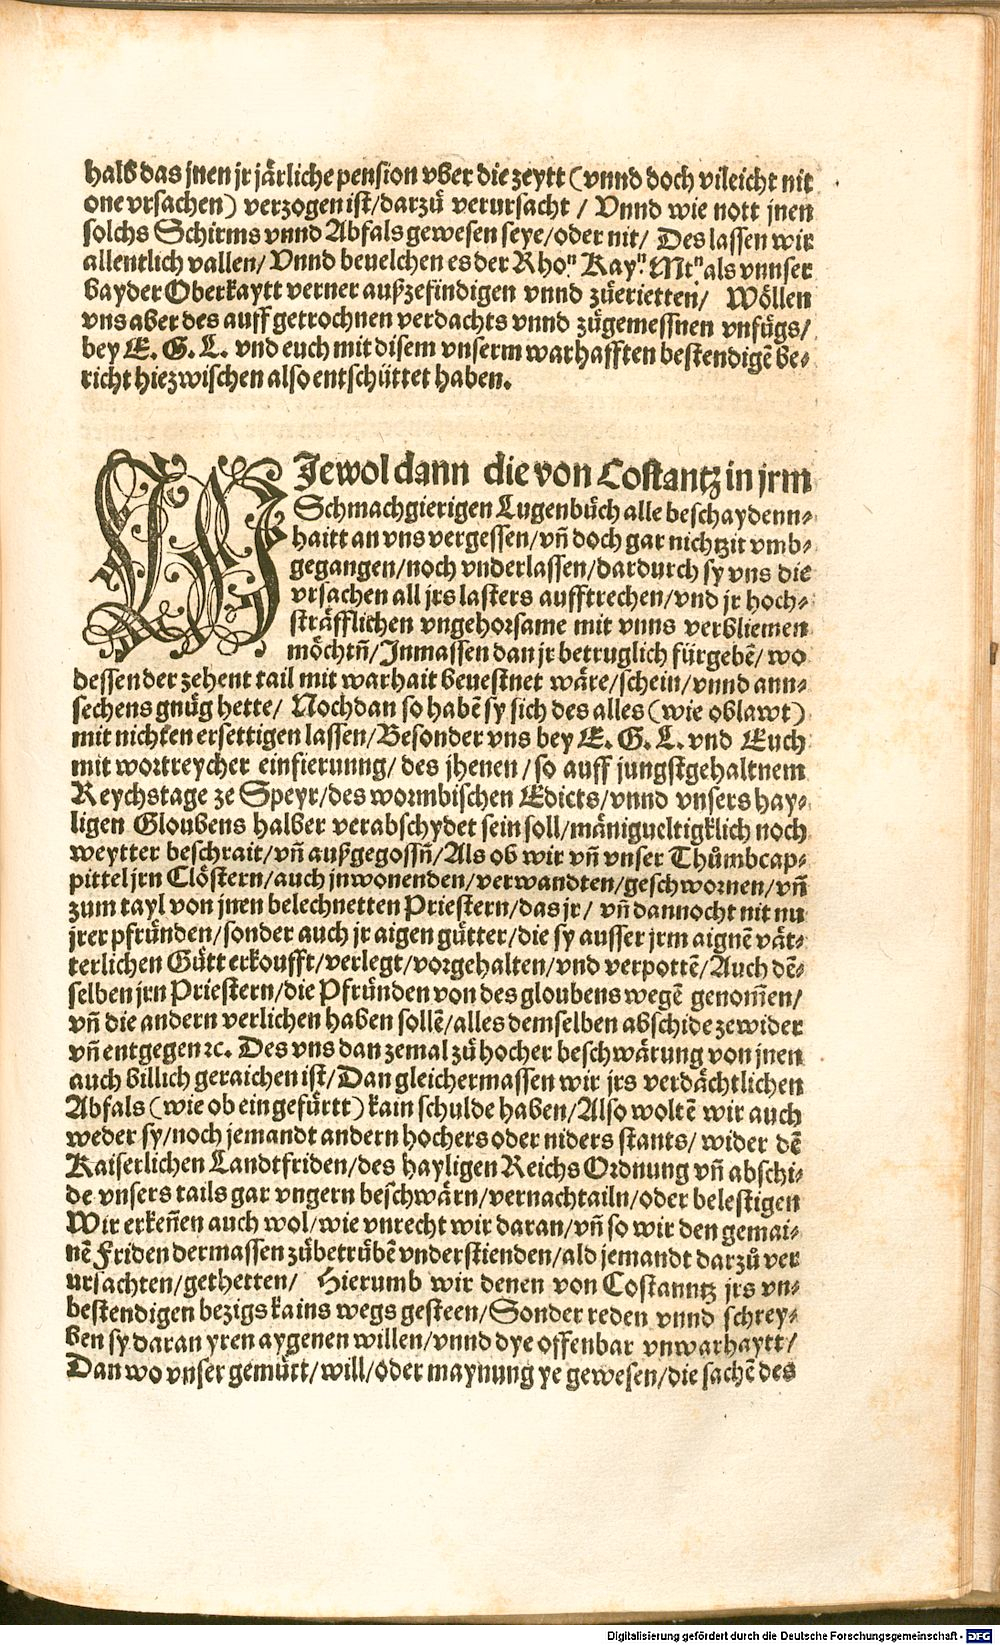 halb das jnen jr järliche pension vber die zeytt (vnnd doch vileicht nit
one vrsachen) verzogen ist/darzů verursacht / Vnnd wie nott jnen
solchs Schirms vnnd Abfals gewesen seye/oder nit/ Des lassen wir
allentlich vallen/ Vnnd beuelchen es der Rhoͤ.ⁿ Kay.ⁿ Mt.ⁿ als vnnser
bayder Oberkaytt verner außzefindigen vnnd zůerietten/ Wöllen
vns aber des auff getrochnen verdachts vnnd zůgemessnen vnfůgs/
bey E. G. L. vnd euch mit disem vnserm warhafften bestendigē be-
richt hiezwischen also entschüttet haben.
WIewol dann die von Costantz in jrm
Schmachgierigen Lugenbůch alle beschaydenn-
haitt an vns vergessen/vn̄ doch gar nichtzit vmb-
gegangen/noch vnderlassen/dardurch sy vns die
vrsachen all jrs lasters aufftrechen/vnd jr hoch-
sträfflichen vngehorsame mit vnns verbliemen
möchtn̄/Inmassen dan jr betruglich fürgebē/wo
dessen der zehent tail mit warhait beuestnet wäre/schein/vnnd ann-
sechens gnůg hette/ Nochdan so habē sy sich des alles (wie oblawt)
mit nichten ersettigen lassen/Besonder vns bey E. G. L. vnd Euch
mit wortreycher einfierunng/des jhenen/so auff jungstgehaltnem
Reychstage ze Speyr/des wormbischen Edicts/vnnd vnsers hay-
ligen Gloubens halber verabschydet sein soll/mänigueltigklich noch
weytter beschrait/vn̄ außgegossn̄/Als ob wir vn̄ vnser Thůmbcap-
pittel jrn Clöstern/auch jnwonenden/verwandten/geschwornen/vn̄
zum tayl von jnen belechnetten Priestern/das jr/ vn̄ dannocht nit nu
jrer pfründen/sonder auch jr aigen gütter/die sy ausser jrm aignē vät-
terlichen Gůtt erkoufft/verlegt/vorgehalten/vnd verpottē/Auch dē-
selben jrn Priestern/die Pfründen von des gloubens wegē genom̄en/
vn̄ die andern verlichen haben sollē/alles demselben abschide zewider
vn̄ entgegen ꝛc. Des vns dan zemal zů hocher beschwärung von jnen
auch billich geraichen ist/Dan gleichermassen wir jrs verdächtlichen
Abfals (wie ob eingefürtt) kain schulde haben/Also woltē wir auch
weder sy/noch jemandt andern hochers oder niders stants/wider dē
Kaiserlichen Landtfriden/des hayligen Reichs Ordnung vn̄ abschi-
de vnsers tails gar vngern beschwärn/vernachtailn/oder belestigen
Wir erken̄en auch wol/wie vnrecht wir daran/vn̄ so wir den gemai-
nē Friden dermassen zůbetrübē vnderstienden/ald jemandt darzů ver
ursachten/gethetten/ Hierumb wir denen von Costanntz jrs vn-
bestendigen bezigs kains wegs gesteen/Sonder reden vnnd schrey-
ben sy daran yren aygenen willen/vnnd dye offenbar vnwarhaytt/
Dan wo vnser gemütt/will/oder maynung ye gewesen/die sachē des
Digitalisierung gefördert durch die Deutsche Forschungsgemeinschaft - DFG